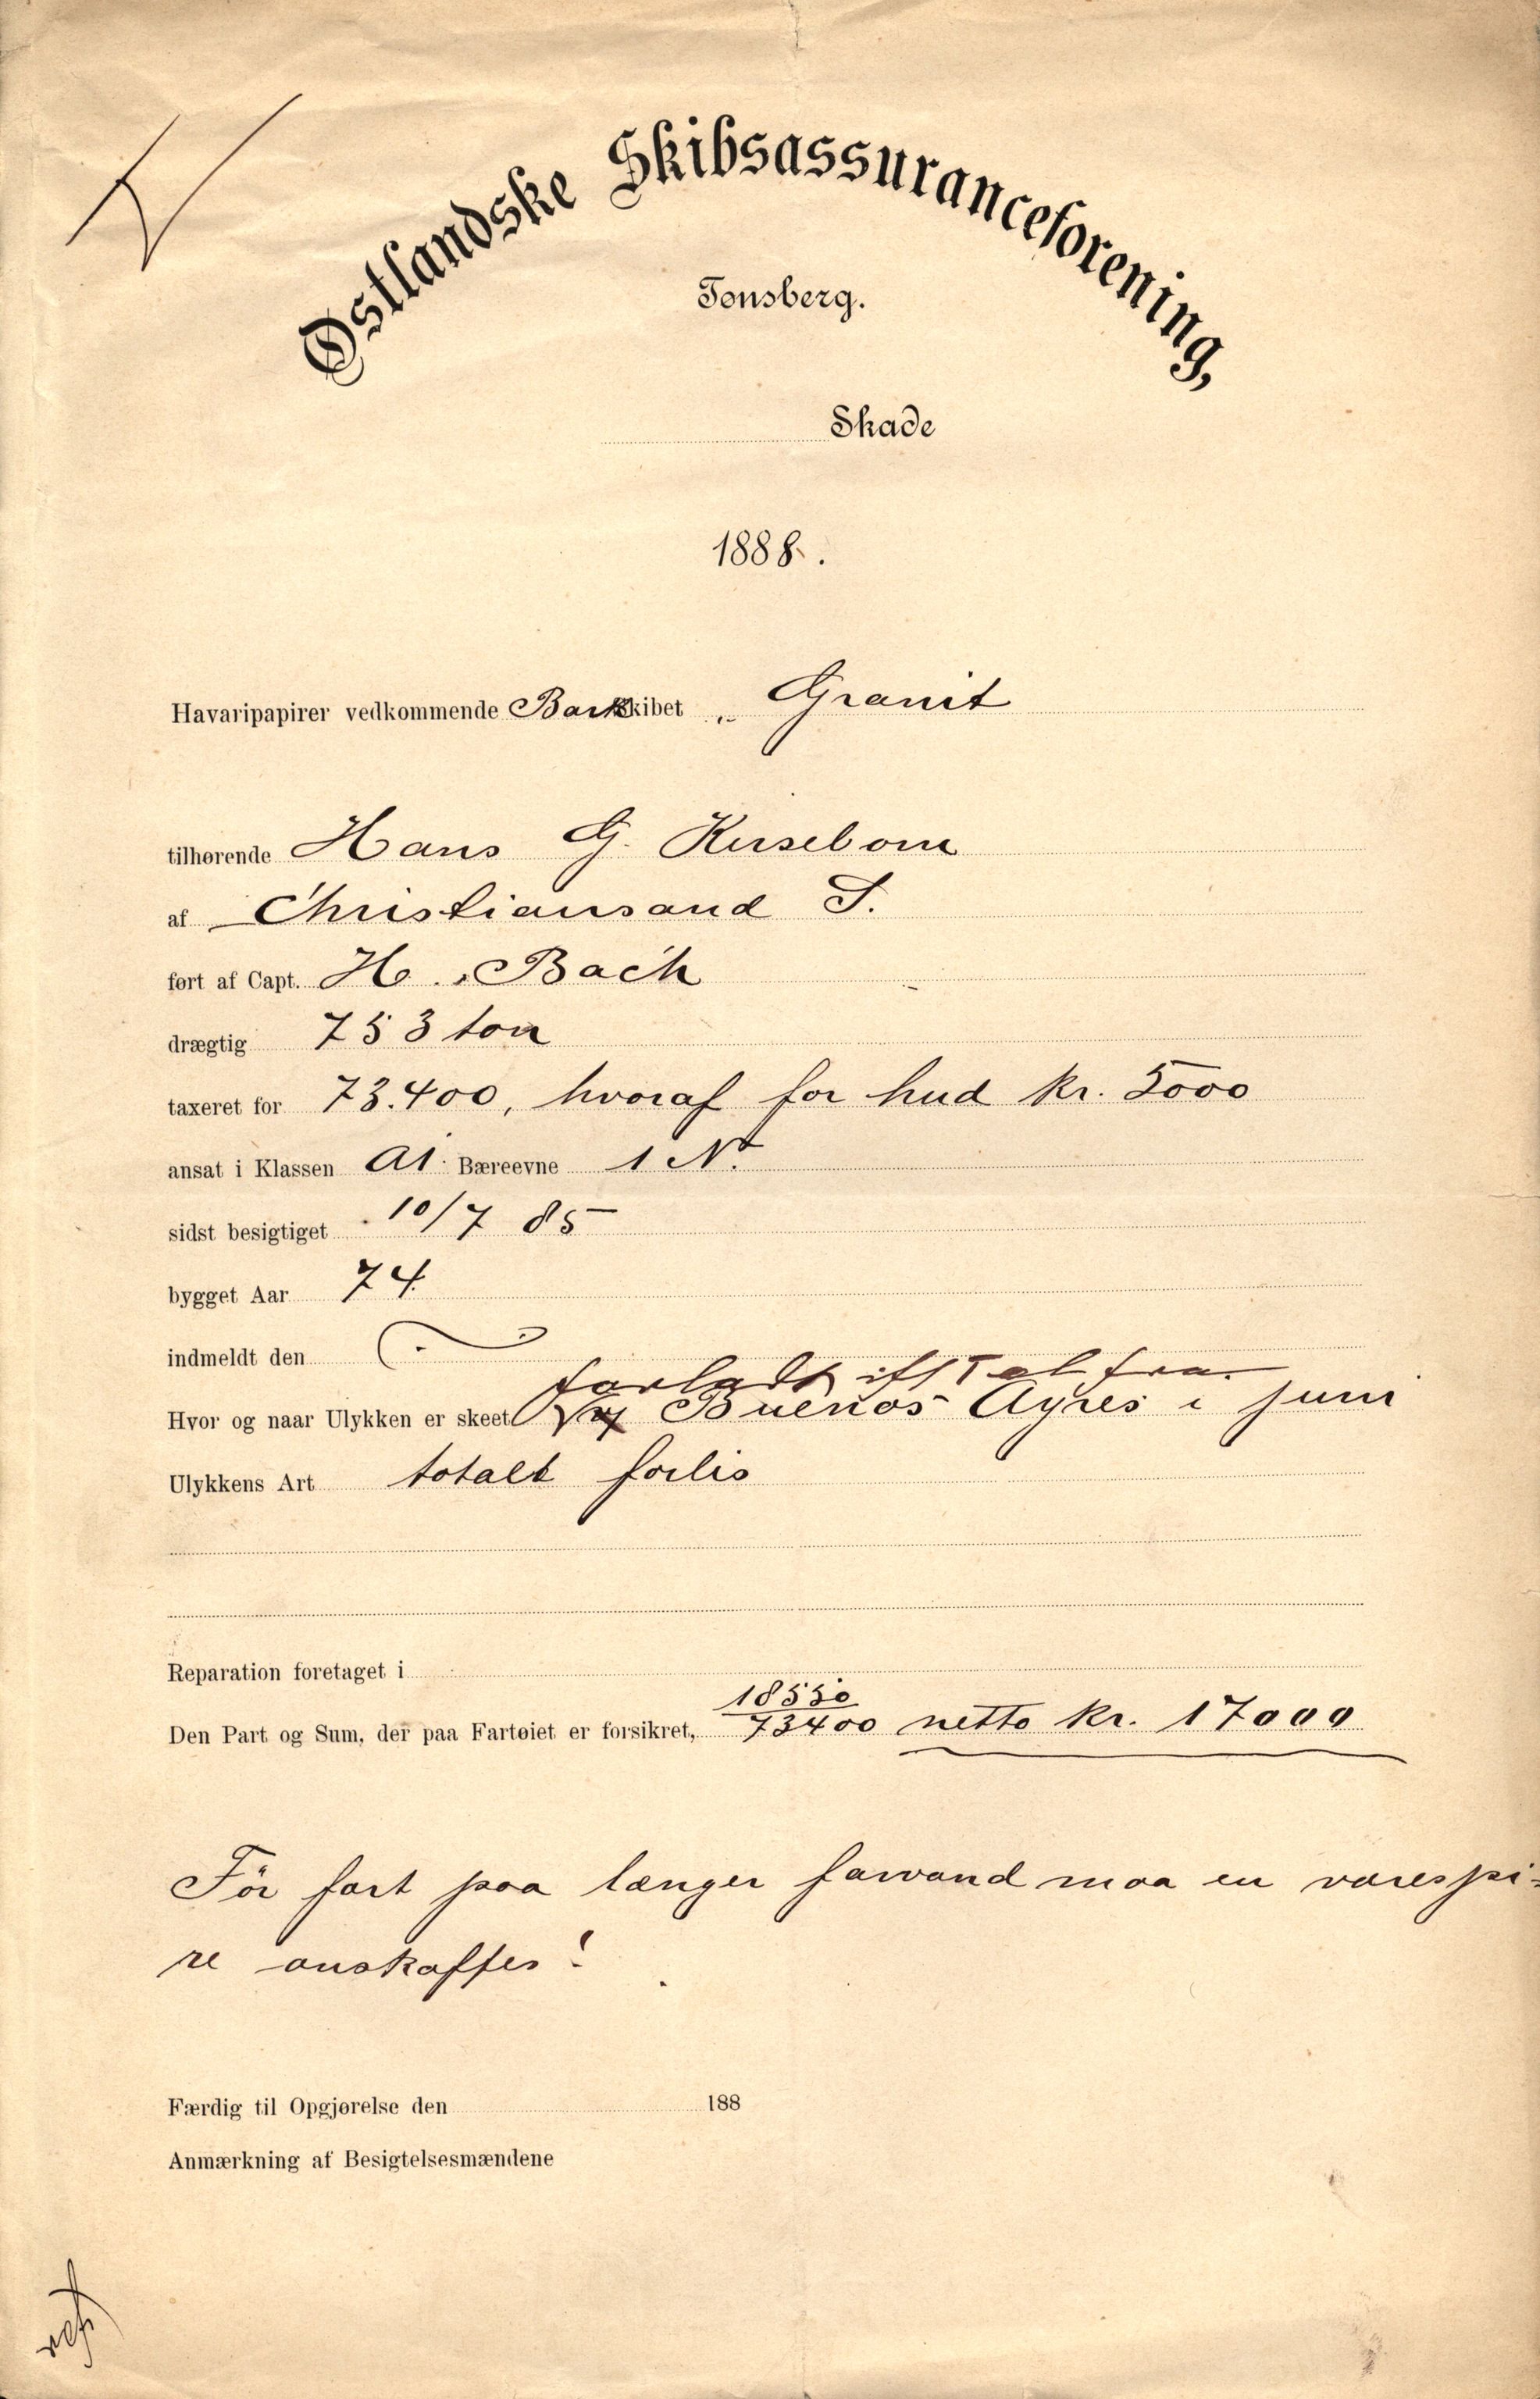 Østlandske Skibsassuranceforening,
Tønsberg.
Skade
1888.
Havaripapirer vedkommende Barkskibet „ Granit
tilhørende Hans G. Kirsebom
af Christiansand S.
ført af Capt. H. Bach
drægtig 753 ton
taxeret for 73.400, hvoraf for hud kr. 5000
ansat i Klassen A1. Bæreevne 1 Nt.
sidst besigtiget 10/7 85
bygget Aar 74.
indmeldt den
forladt ifl Tel fra
Hvor og naar Ulykken er skeet Buenos Ayres i juni
Ulykkens Art totalt forlis
Reparation foretaget i
18550
Den Part og Sum, der paa Fartøiet er forsikret, 73400 netto kr. 17000
För fart paa længer farvand maa en varespi=
re anskaffes!
Færdig til Opgjørelse den 188
Anmærkning af Besigtelsesmændene